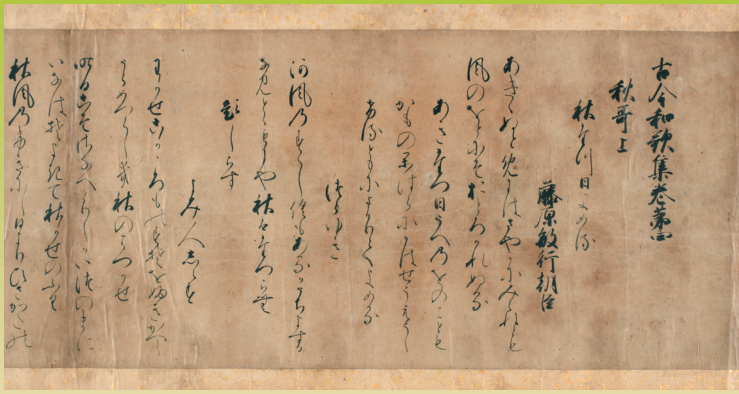 古今和歌集巻第四
秋哥上
秋たつ日よめる
藤原敏行朝臣
あきゝぬと免にはさやかにみえねとも
風のをとにそおとろかれぬる
あきたつ日うへのをのことも
かものかはらにかはせうえうし
けるともにまかりてよめる
つらゆき
河風のすゝしくもあるかうちよする
なみとゝもにや秋はたつらむ
題しらす
よみ人しらす
わかせこかころものすそをふきかへし
うらめつらしき秋のはつかせ
昨日こそさなへとりしかいつのまに
いなはそよきて秋かせのふく
秋風のふきにし日よりひさかたの